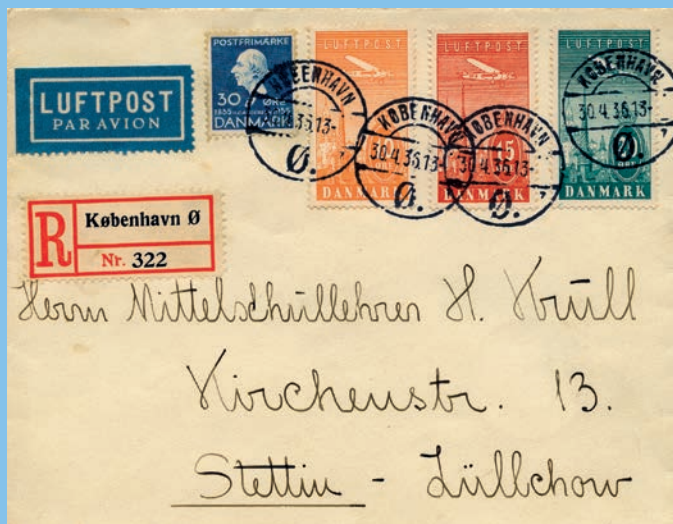 LUFTPOST
PAR AVION
POSTFRIMÆRKE
30 ØRE
DANMARK
LUFTPOST
DANMARK
LUFTPOST
15
DANMARK
LUFTPOST
DANMARK
KØBENHAVN
13-
Ø.
KØBENHAVN
30.4.36.13-
Ø.
KØBENHAVN
30.4.36.13-
Ø.
KØBENHAVN
30.4.36.13-
Ø.
R
København Ø
Nr. 322
Herrn Mittelschullehrer H. Krull
Kirchenstr. 13.
Stettin - Züllchow